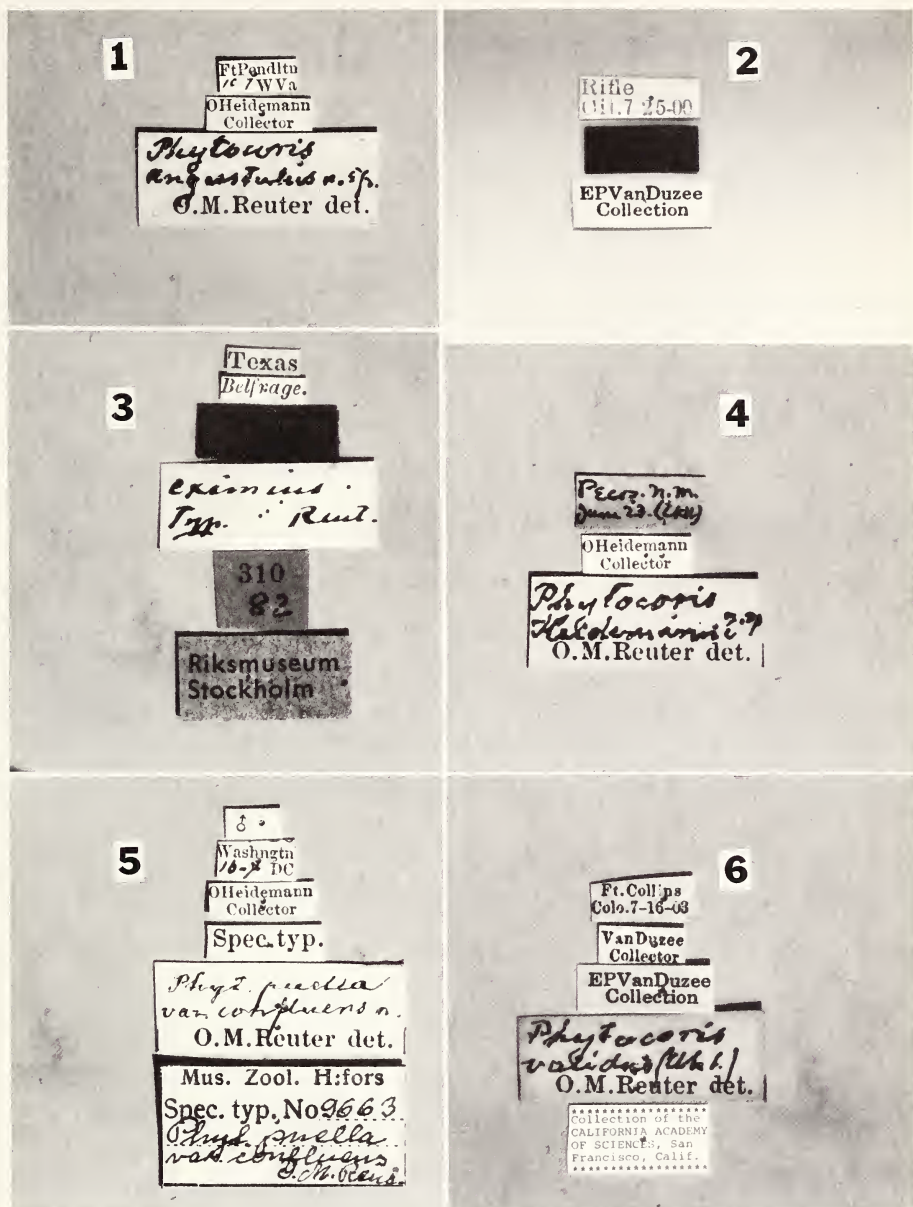 1
FtPendltn
7 WVa
OHeidemann
Collector
Phytocoris
angustulus n. sp.
O.M.Reuter det.
2
Rifle
7 25-00
EPVanDuzee
Collection
3
Texas
Belfrage.
eximius
Typ. Reut.
310
82
Riksmuseum
Stockholm
4
Pecos. N. M.
June 23.
OHeidemann
Collector
Phytocoris
Heidemanni n. sp
O.M.Reuter det.
5
♂
Washngtn
DC
OHeidemann
Collector
Spec. typ.
Phyt. puella
var confluens n.
O.M.Reuter det.
Mus. Zool. H:fors
Spec. typ. No 9663
Phyt. puella
var. confluens
O.M. Reut.
6
Ft. Collins
Colo. 7-16-03
VanDuzee
Collector
EPVanDuzee
Collection
Phytocoris
validus (Uhl.)
O.M.Reuter det.
******************
Collection of the
CALIFORNIA ACADEMY
OF SCIENCES, San
Francisco, Calif.
******************